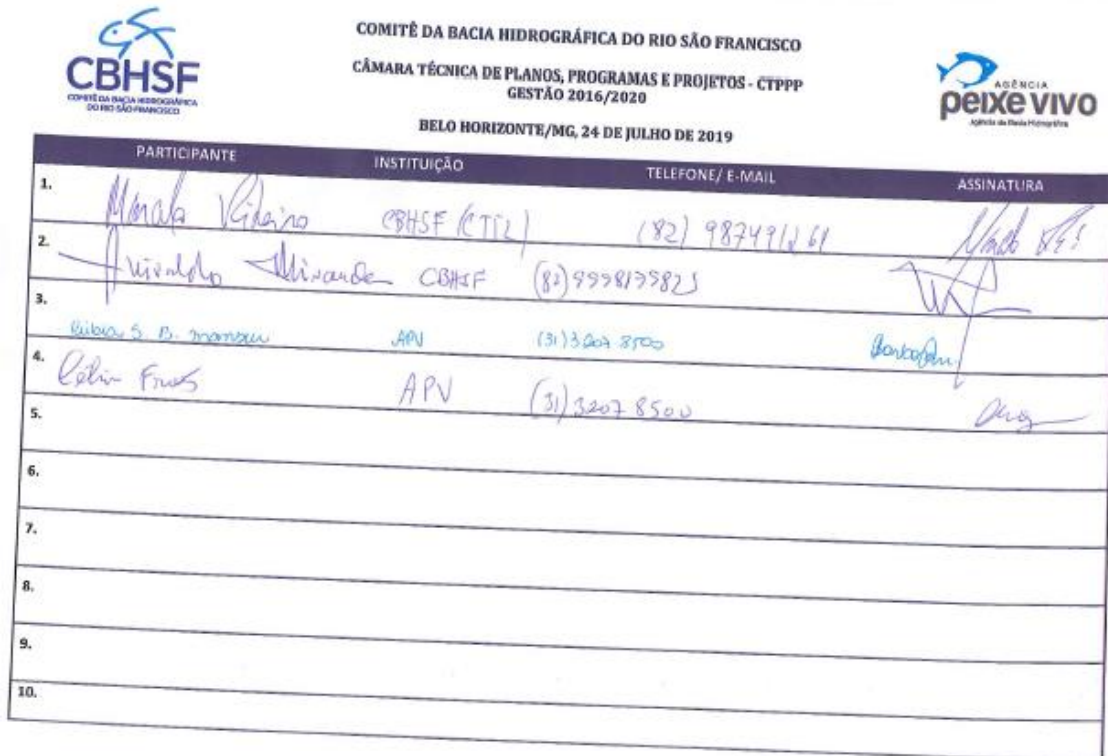 CBHSF
COMITÊ DA BACIA HIDROGRÁFICA
DO RIO SÃO FRANCISCO
COMITÊ DA BACIA HIDROGRÁFICA DO RIO SÃO FRANCISCO
CÂMARA TÉCNICA DE PLANOS, PROGRAMAS E PROJETOS - CTPPP
GESTÃO 2016/2020
BELO HORIZONTE/MG, 24 DE JULHO DE 2019
AGÊNCIA
peixe vivo
Agência de Bacia Hidrográfica
PARTICIPANTE INSTITUIÇÃO TELEFONE/ E-MAIL ASSINATURA
1. Ribeiro CBHSF (CTIL) (82)
2. Anivaldo Miranda CBHSF (82)
3. S. B. Mansur APV (31) 3207 8500
4. Célia Fróes APV (31) 3207 8500
5.
6.
7.
8.
9.
10.